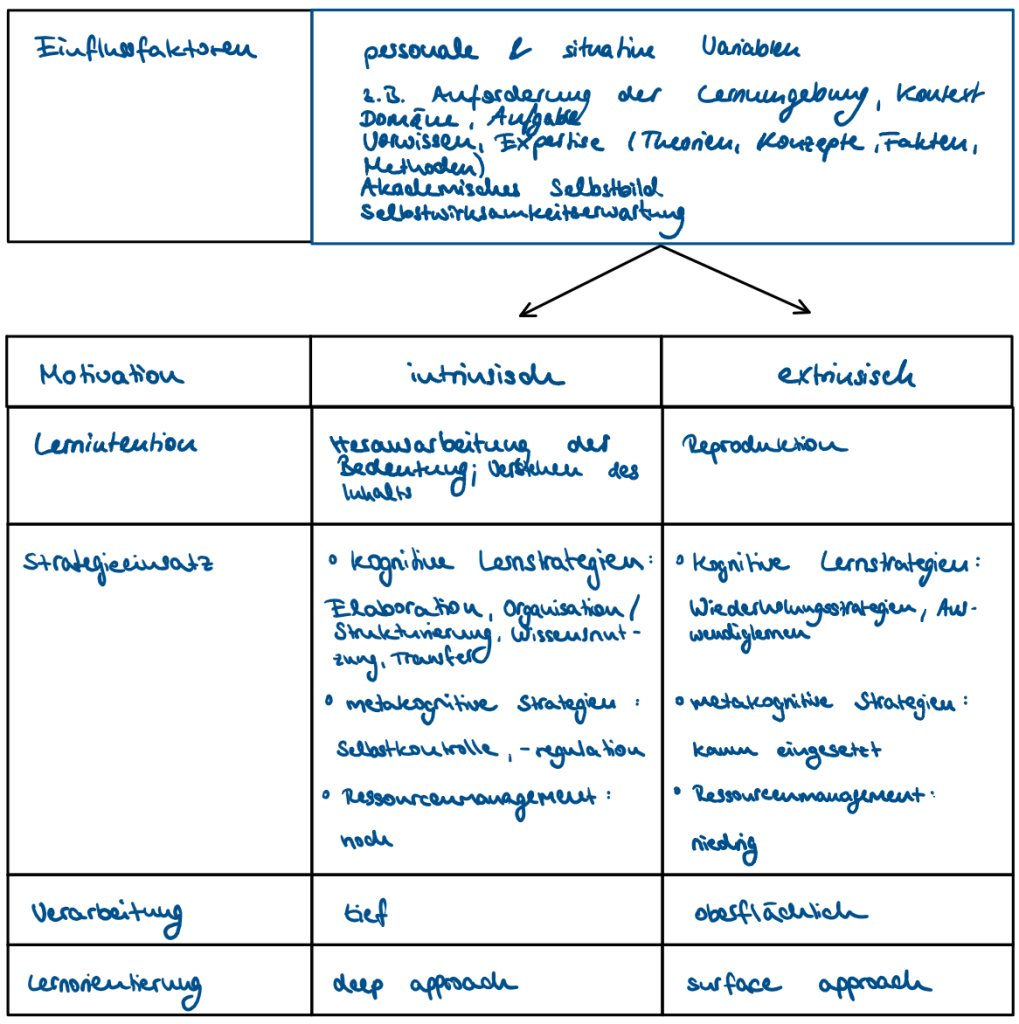 Einflussfaktoren
personale & situative Variablen
z.B. Anforderung der Lernumgebung, Kontext
Domäne, Aufgabe
Vorwissen, Expertise (Theorien, Konzepte, Fakten,
Methoden)
Akademisches Selbstbild
Selbstwirksamkeitserwartung
Motivation
intrinsisch
extrinsisch
Lernintention
Herausarbeitung der
Bedeutung; Verstehen des
Inhalts
Reproduktion
Strategieeinsatz
• kognitive Lernstrategien:
Elaboration, Organisation/
Strukturierung, Wissensnut-
zung, Transfer
• metakognitive Strategien:
Selbstkontrolle, -regulation
• Ressourcenmanagement:
hoch
• kognitive Lernstrategien:
Wiederholungsstrategien, Aus-
wendiglernen
• metakognitive Strategien:
kaum eingesetzt
• Ressourcenmanagement:
niedrig
Verarbeitung
tief
oberflächlich
Lernorientierung
deep approach
surface approach